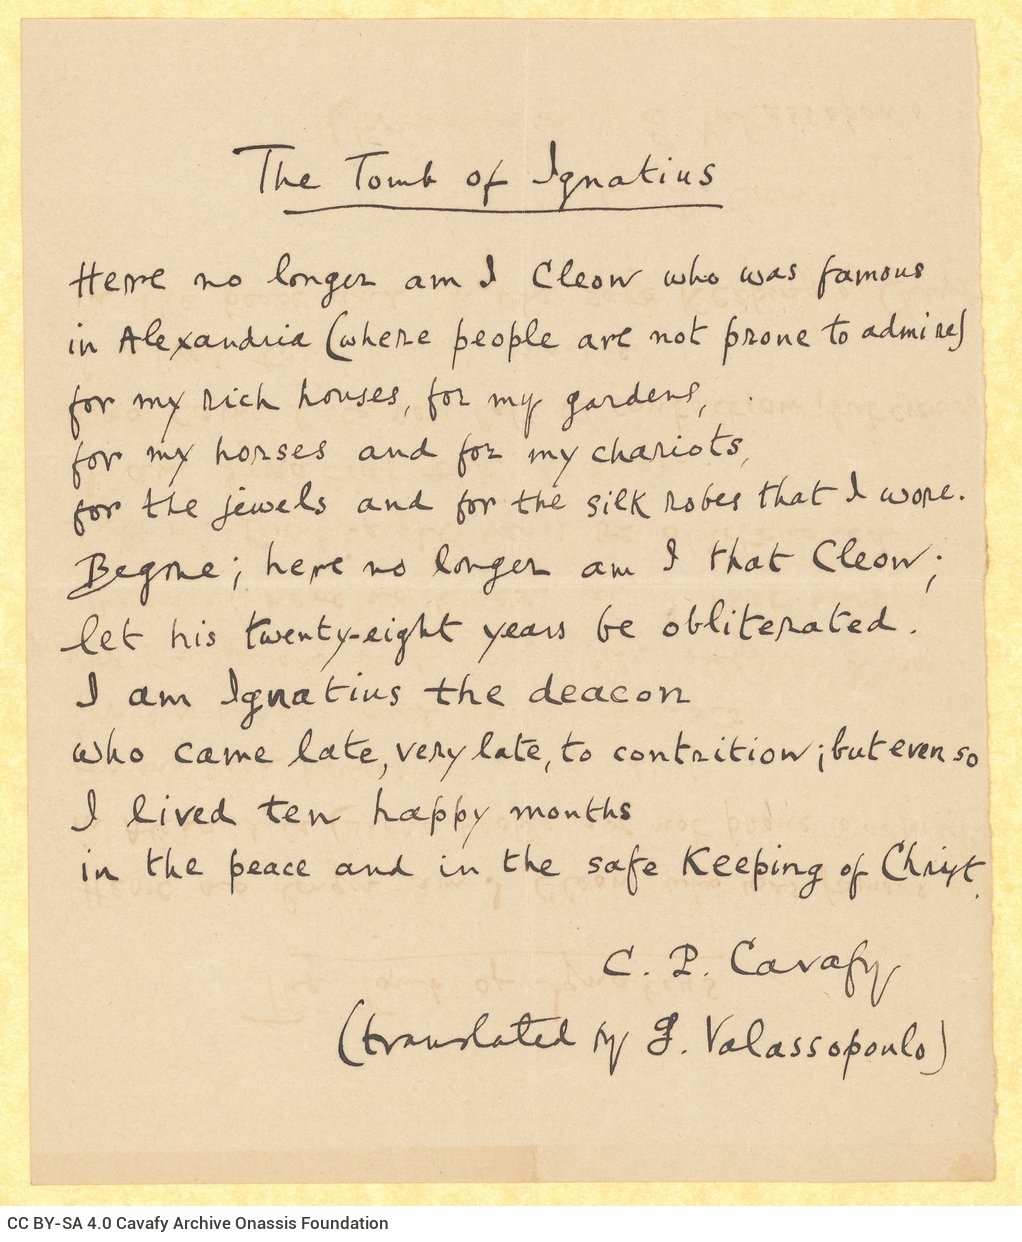 The Tomb of Ignatius
Here no longer am I Cleon who was famous
in Alexandria (where people are not prone to admire)
for my rich houses, for my gardens,
for my horses and for my chariots,
for the jewels and for the silk robes that I wore.
Begone; here no longer am I that Cleon;
let his twenty-eight years be obliterated.
I am Ignatius the deacon
who came late, very late, to contrition; but even so
I lived ten happy months
in the peace and in the safe keeping of Christ.
C. P. Cavafy
(translated by G. Valassopoulo)
CC BY-SA 4.0 Cavafy Archive Onassis Foundation